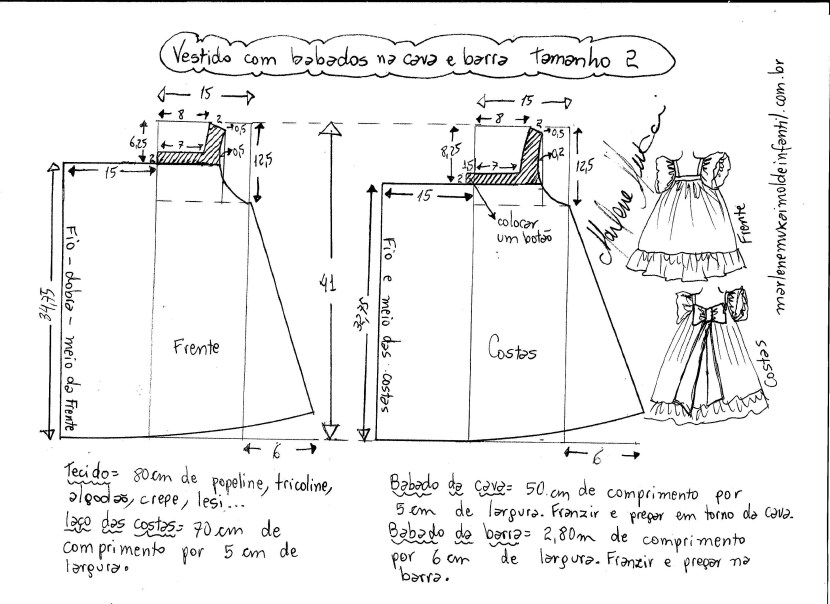 Vestido com babados na cava e barra Tamanho 2
15
8
2
0,5
6,25
7
0,5
12,5
2
15
34,75
Fio - dobra - meio da frente
Frente
6
41
15
8
2
0,5
8,25
1,5
7
0,2
12,5
2
15
colocar
um botão
Fio e meio das costas
Costas
6
Marlene Mukai
Frente
Costas
marlenemukaimoldeinfantil.com.br
Tecido= 80cm de popeline, tricoline,
algodão, crepe, lesi...
laço das costas= 70 cm de
comprimento por 5 cm de
largura.
Babado da cava= 50 cm de comprimento por
5 cm de largura. Franzir e pregar em torno da cava.
Babado da barra= 2,80m de comprimento
por 6 cm de largura. Franzir e pregar na
barra.